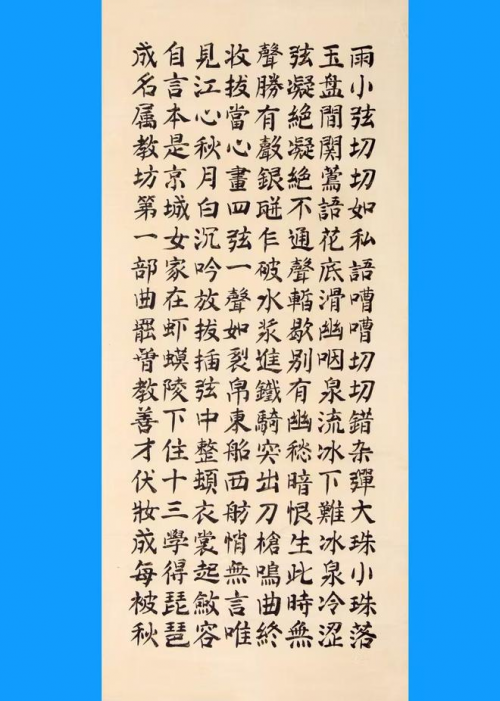 雨小弦切切如私語嘈嘈切切錯杂彈大珠小珠落
玉盘間関鶯語花底滑幽咽泉流冰下難冰泉冷涩
弦凝絶凝絶不通聲暫歇别有幽愁暗恨生此時無
聲勝有聲銀瓶乍破水浆進鐵騎突出刀槍鳴曲終
收拔當心畫四弦一聲如裂帛東船西舫悄無言唯
見江心秋月白沉吟放拔插弦中整頓衣裳起斂容
自言本是京城女家在虾蟆陵下住十三學得琵琶
成名属教坊第一部曲罷曾教善才伏妝成每被秋